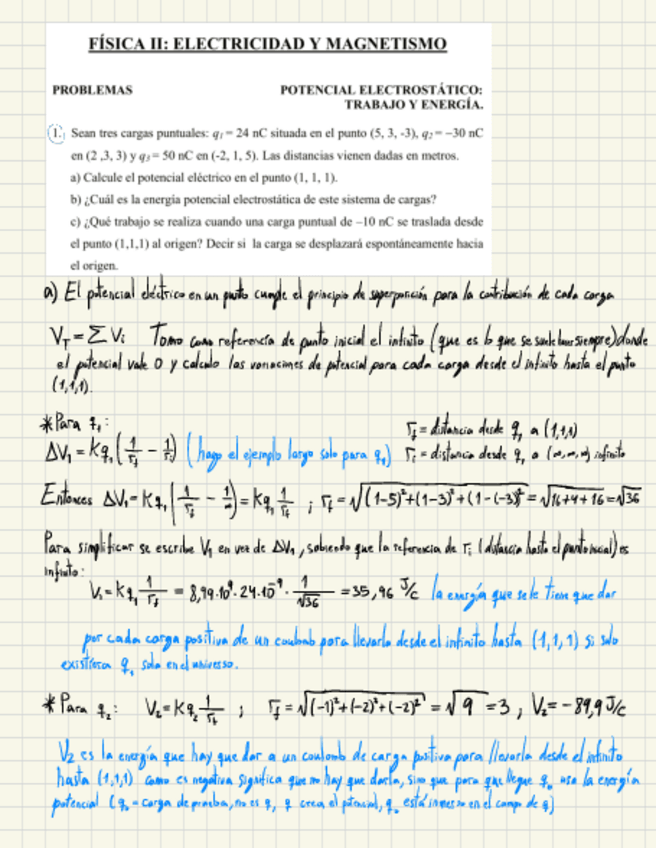 FÍSICA II: ELECTRICIDAD Y MAGNETISMO
PROBLEMAS
POTENCIAL ELECTROSTÁTICO:
TRABAJO Y ENERGÍA.
1. Sean tres cargas puntuales: q₁ = 24 nC situada en el punto (5, 3, -3), q₂ = −30 nC
en (2 ,3, 3) y q₃ = 50 nC en (-2, 1, 5). Las distancias vienen dadas en metros.
a) Calcule el potencial eléctrico en el punto (1, 1, 1).
b) ¿Cuál es la energía potencial electrostática de este sistema de cargas?
c) ¿Qué trabajo se realiza cuando una carga puntual de −10 nC se traslada desde
el punto (1,1,1) al origen? Decir si la carga se desplazará espontáneamente hacia
el origen.
a) El potencial eléctrico en un punto cumple el principio de superposición para la contribución de cada carga
V_T = ΣVi Tomo como referencia de punto inicial el infinito (que es lo que se suele hacer siempre) donde
el potencial vale 0 y calculo las variaciones de potencial para cada carga desde el infinito hasta el punto
(1,1,1).
*Para q₁:
r_f = distancia desde q₁ a (1,1,1)
ΔV₁ = Kq₁(1/r_f − 1/r_i) (hago el ejemplo largo solo para q₁) r_i = distancia desde q₁ a (∞,∞,∞) infinito
Entonces ΔV₁ = Kq₁(1/r_f − 1/∞) = Kq₁ 1/r_f ; r_f = √((1-5)²+(1-3)²+(1-(-3))² = √16+4+16 = √36
Para simplificar se escribe V₁ en vez de ΔV₁, sabiendo que la referencia de r_i (distancia hasta el punto inicial) es
infinito:
V₁ = Kq₁ 1/r_f = 8,99·10⁹·24·10⁻⁹· 1/√36 = 35,96 J/C la energía que se le tiene que dar
por cada carga positiva de un coulomb para llevarla desde el infinito hasta (1,1,1) si solo
existiera q₁ sola en el universo.
*Para q₂: V₂ = Kq₂ 1/r_f ; r_f = √((-1)²+(-2)²+(-2)²) = √9 = 3 , V₂ = −89,9 J/C
V₂ es la energía que hay que dar a un coulomb de carga positiva para llevarla desde el infinito
hasta (1,1,1) como es negativa significa que no hay que darla, sino que para que llegue q₀ usa la energía
potencial (q₀ = carga de prueba, no es q, q crea el potencial, q₀ está inmerso en el campo de q)